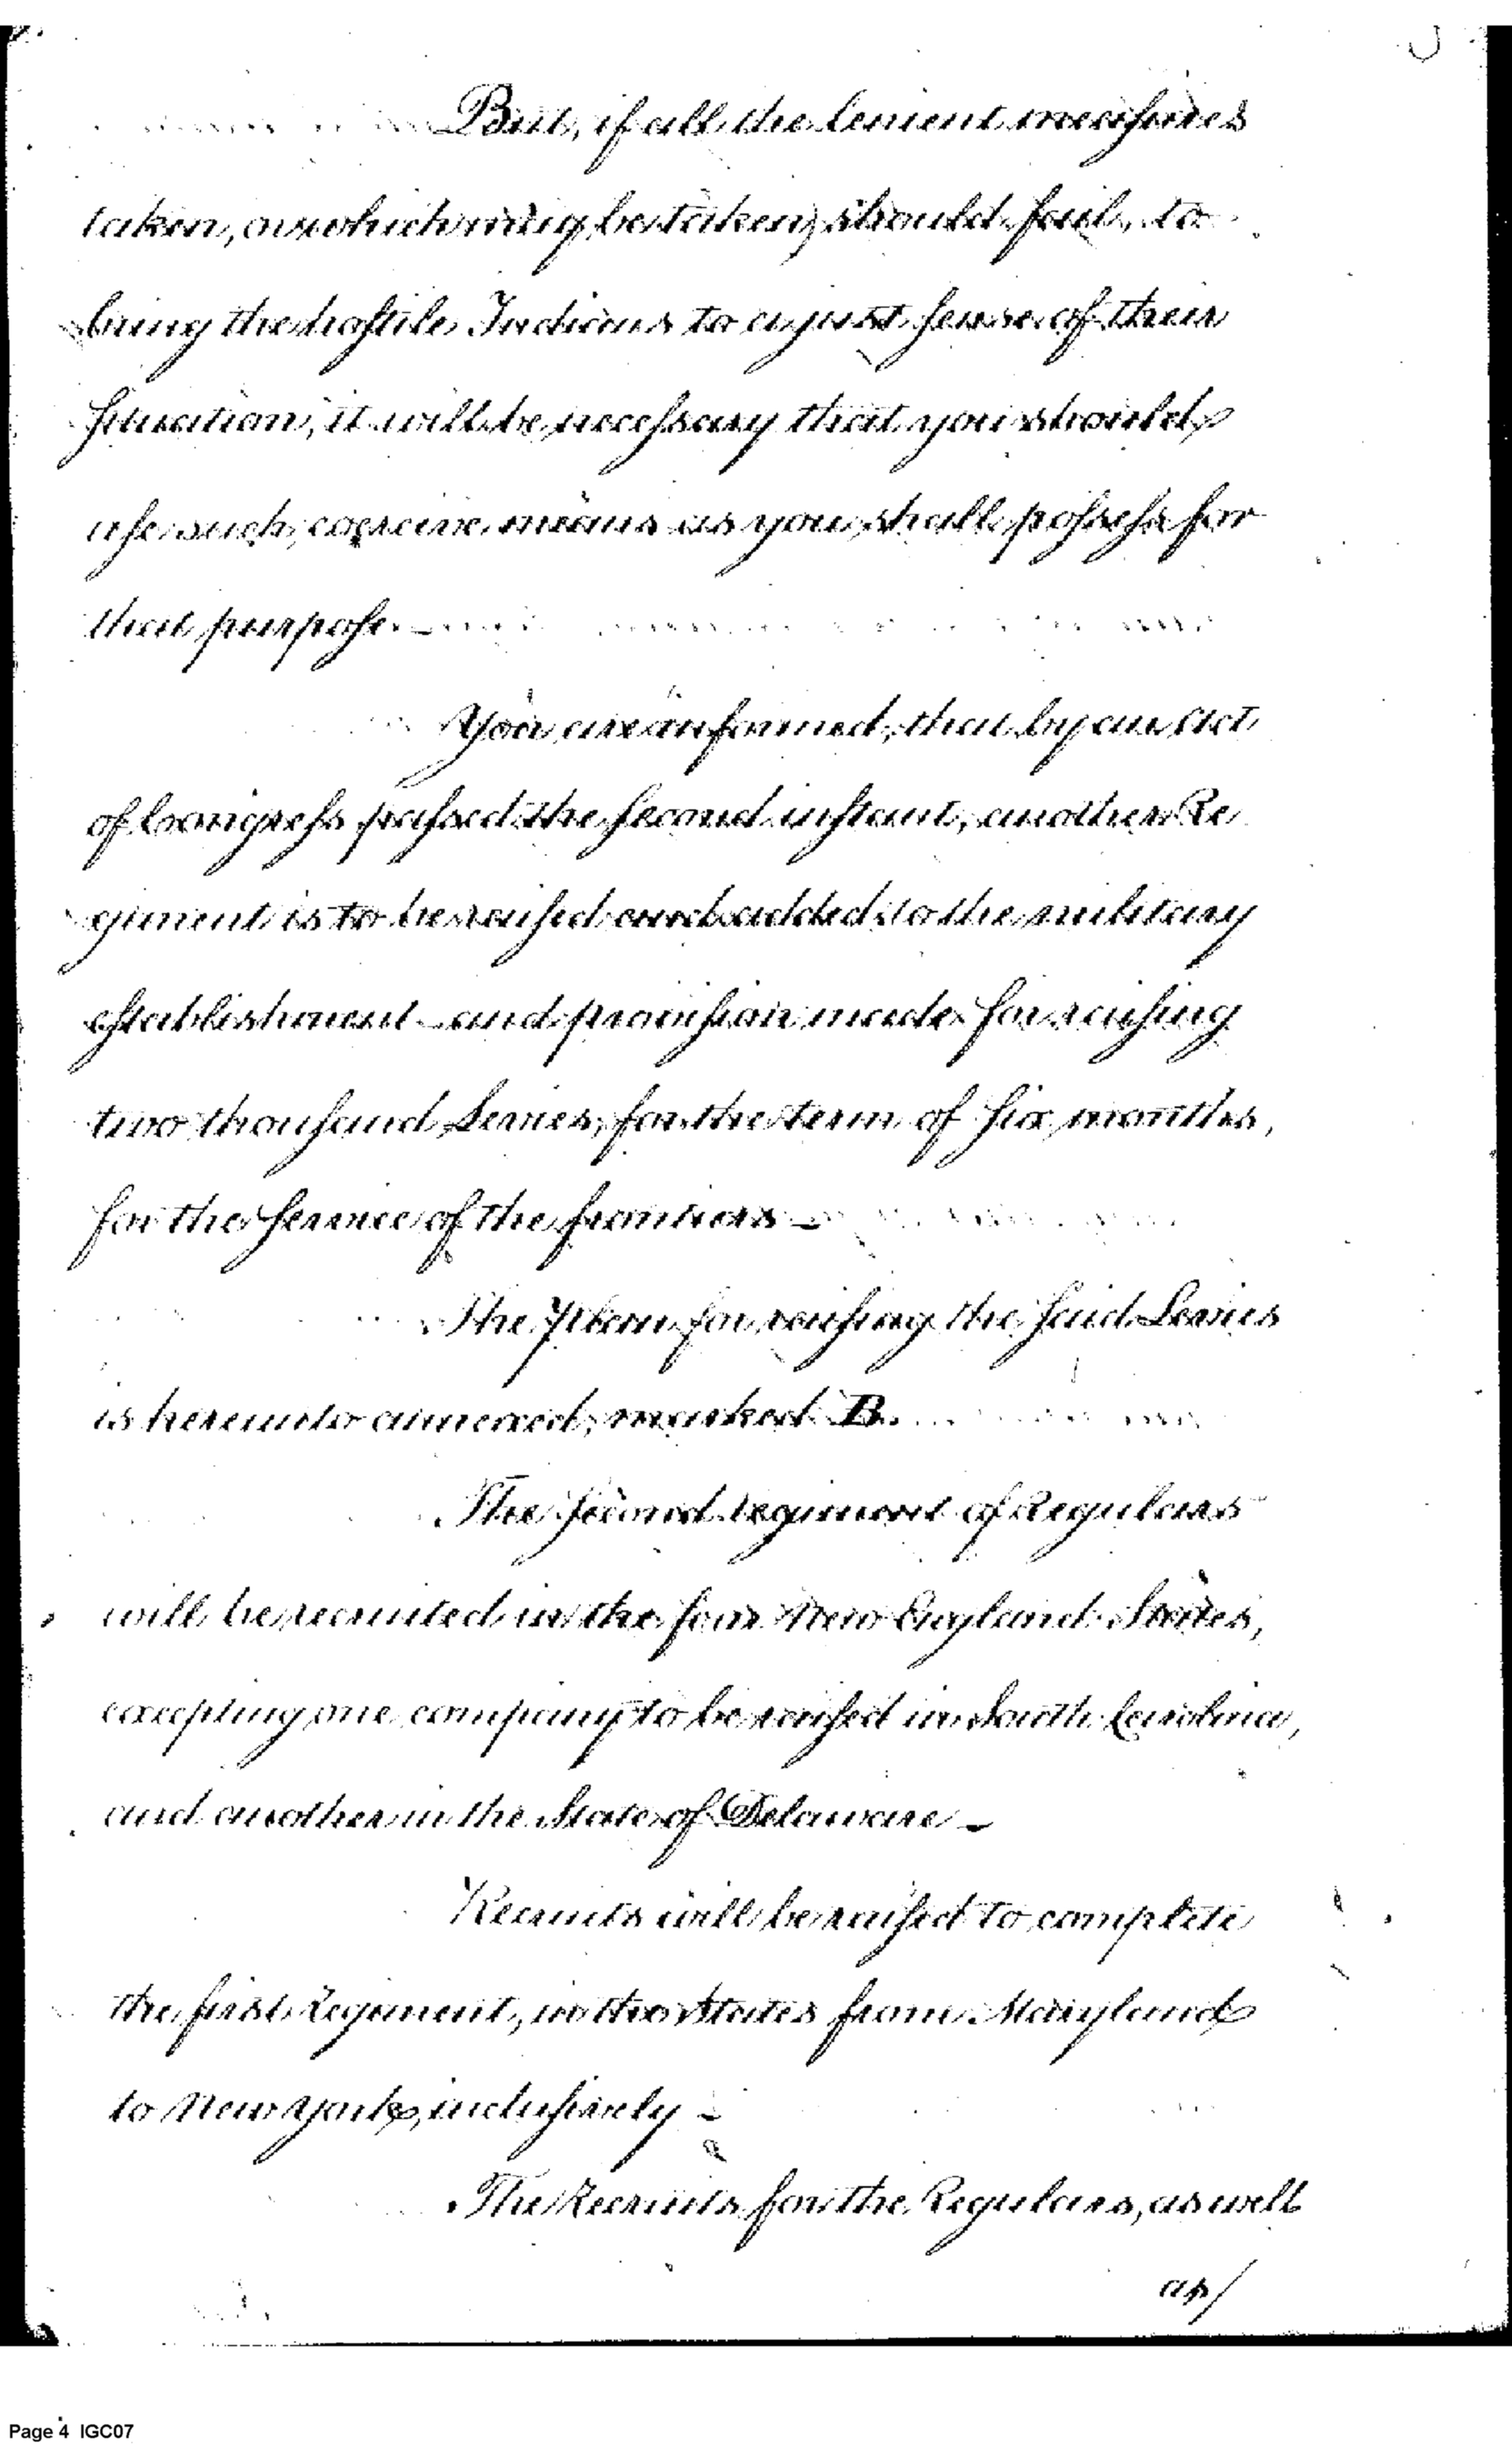 But, if all the lenient measures
taken, or which may be taken, should fail, to
bring the hostile Indians to a just sense of their
situation, it will be necessary that you should
use such, coercive means as you shall possess for
that purpose. –
You are informed, that by an Act
of Congress passed the second instant, another Re
giment is to be raised and added to the military
establishment – and provision made for raising
two thousand Levies, for the term of six months,
for the service of the frontiers –
The Plan for raising the said Levies
is hereunto annexed, marked B.
The second regiment of Regulars
will be recruited in the four New England States,
excepting one company to be raised in South Carolina,
and another in the State of Delaware –
Recruits will be raised to complete
the first Regiment, in the States from Maryland
to New York, inclusively –
The Recruits for the Regulars, as well
as/
Page 4 IGC07